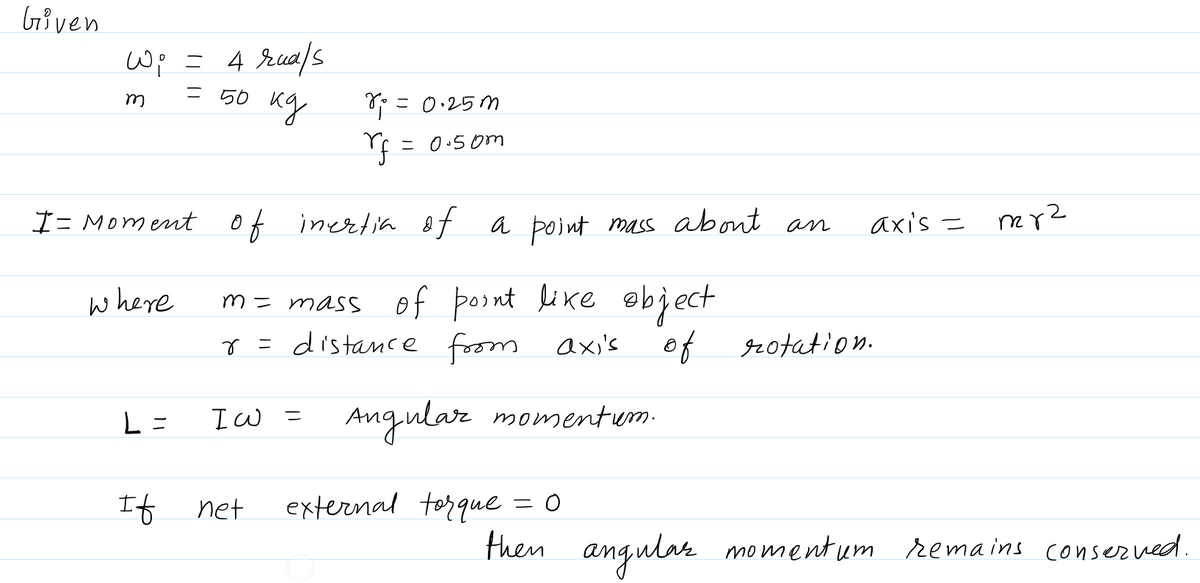 Given
ωi = 4 rad/s
m = 50 kg ri = 0.25 m
rf = 0.50m
I = Moment of inertia of a point mass about an axis = mr²
where m = mass of point like object
r = distance from axis of rotation.
L = Iω = Angular momentum.
If net external torque = 0
then angular momentum remains conserved.